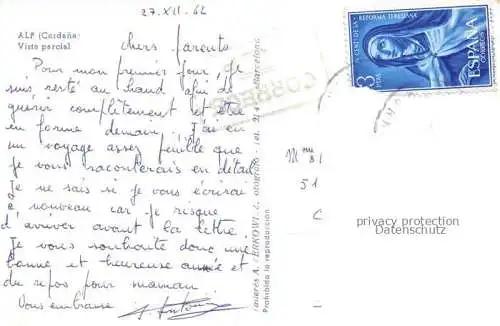 27.XII.62
ALP (Cerdaña)
Vista parcial
chers parents
Pour mon premier jour, je
suis resté au chaud afin de
guérir complètement et être
en forme demain. J'ai eu
un voyage assez pénible que
je vous raconterais en détail
Je ne sais si je vous écrirai
à nouveau car je risque
d'arriver avant la lettre.
Je vous souhaite donc une
bonne et heureuse année et
du repos pour maman
Vous embrasse
Prohibida la reproducción
Barcelona
CORREOS
IV CENT. DE LA REFORMA TERESIANA
3 PTAS
ESPAÑA
CORREOS
51
C
privacy protection
Datenschutz